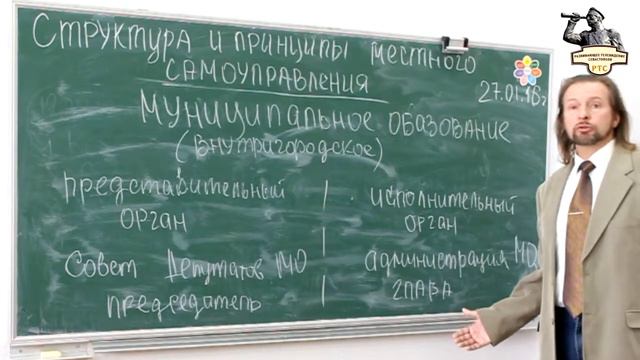 СТРУКТУРА И ПРИНЦИПЫ МЕСТНОГО
САМОУПРАВЛЕНИЯ
27.01.18г
МУНИЦИПАЛЬНОЕ ОБАЗОВАНИЕ
(ВНУТРИГОРОДСКОЕ)
ПРЕДСТАВИТЕЛЬНЫЙ ОРГАН
ИСПОЛНИТЕЛЬНЫЙ ОРГАН
СОВЕТ ДЕПУТАТОВ МО
ПРЕДСЕДАТЕЛЬ
АДМИНИСТРАЦИЯ МО
ГЛАВА
РАЗВИВАЮЩЕЕ ТЕЛЕВИДЕНИЕ
СЕВАСТОПОЛЯ
РТС